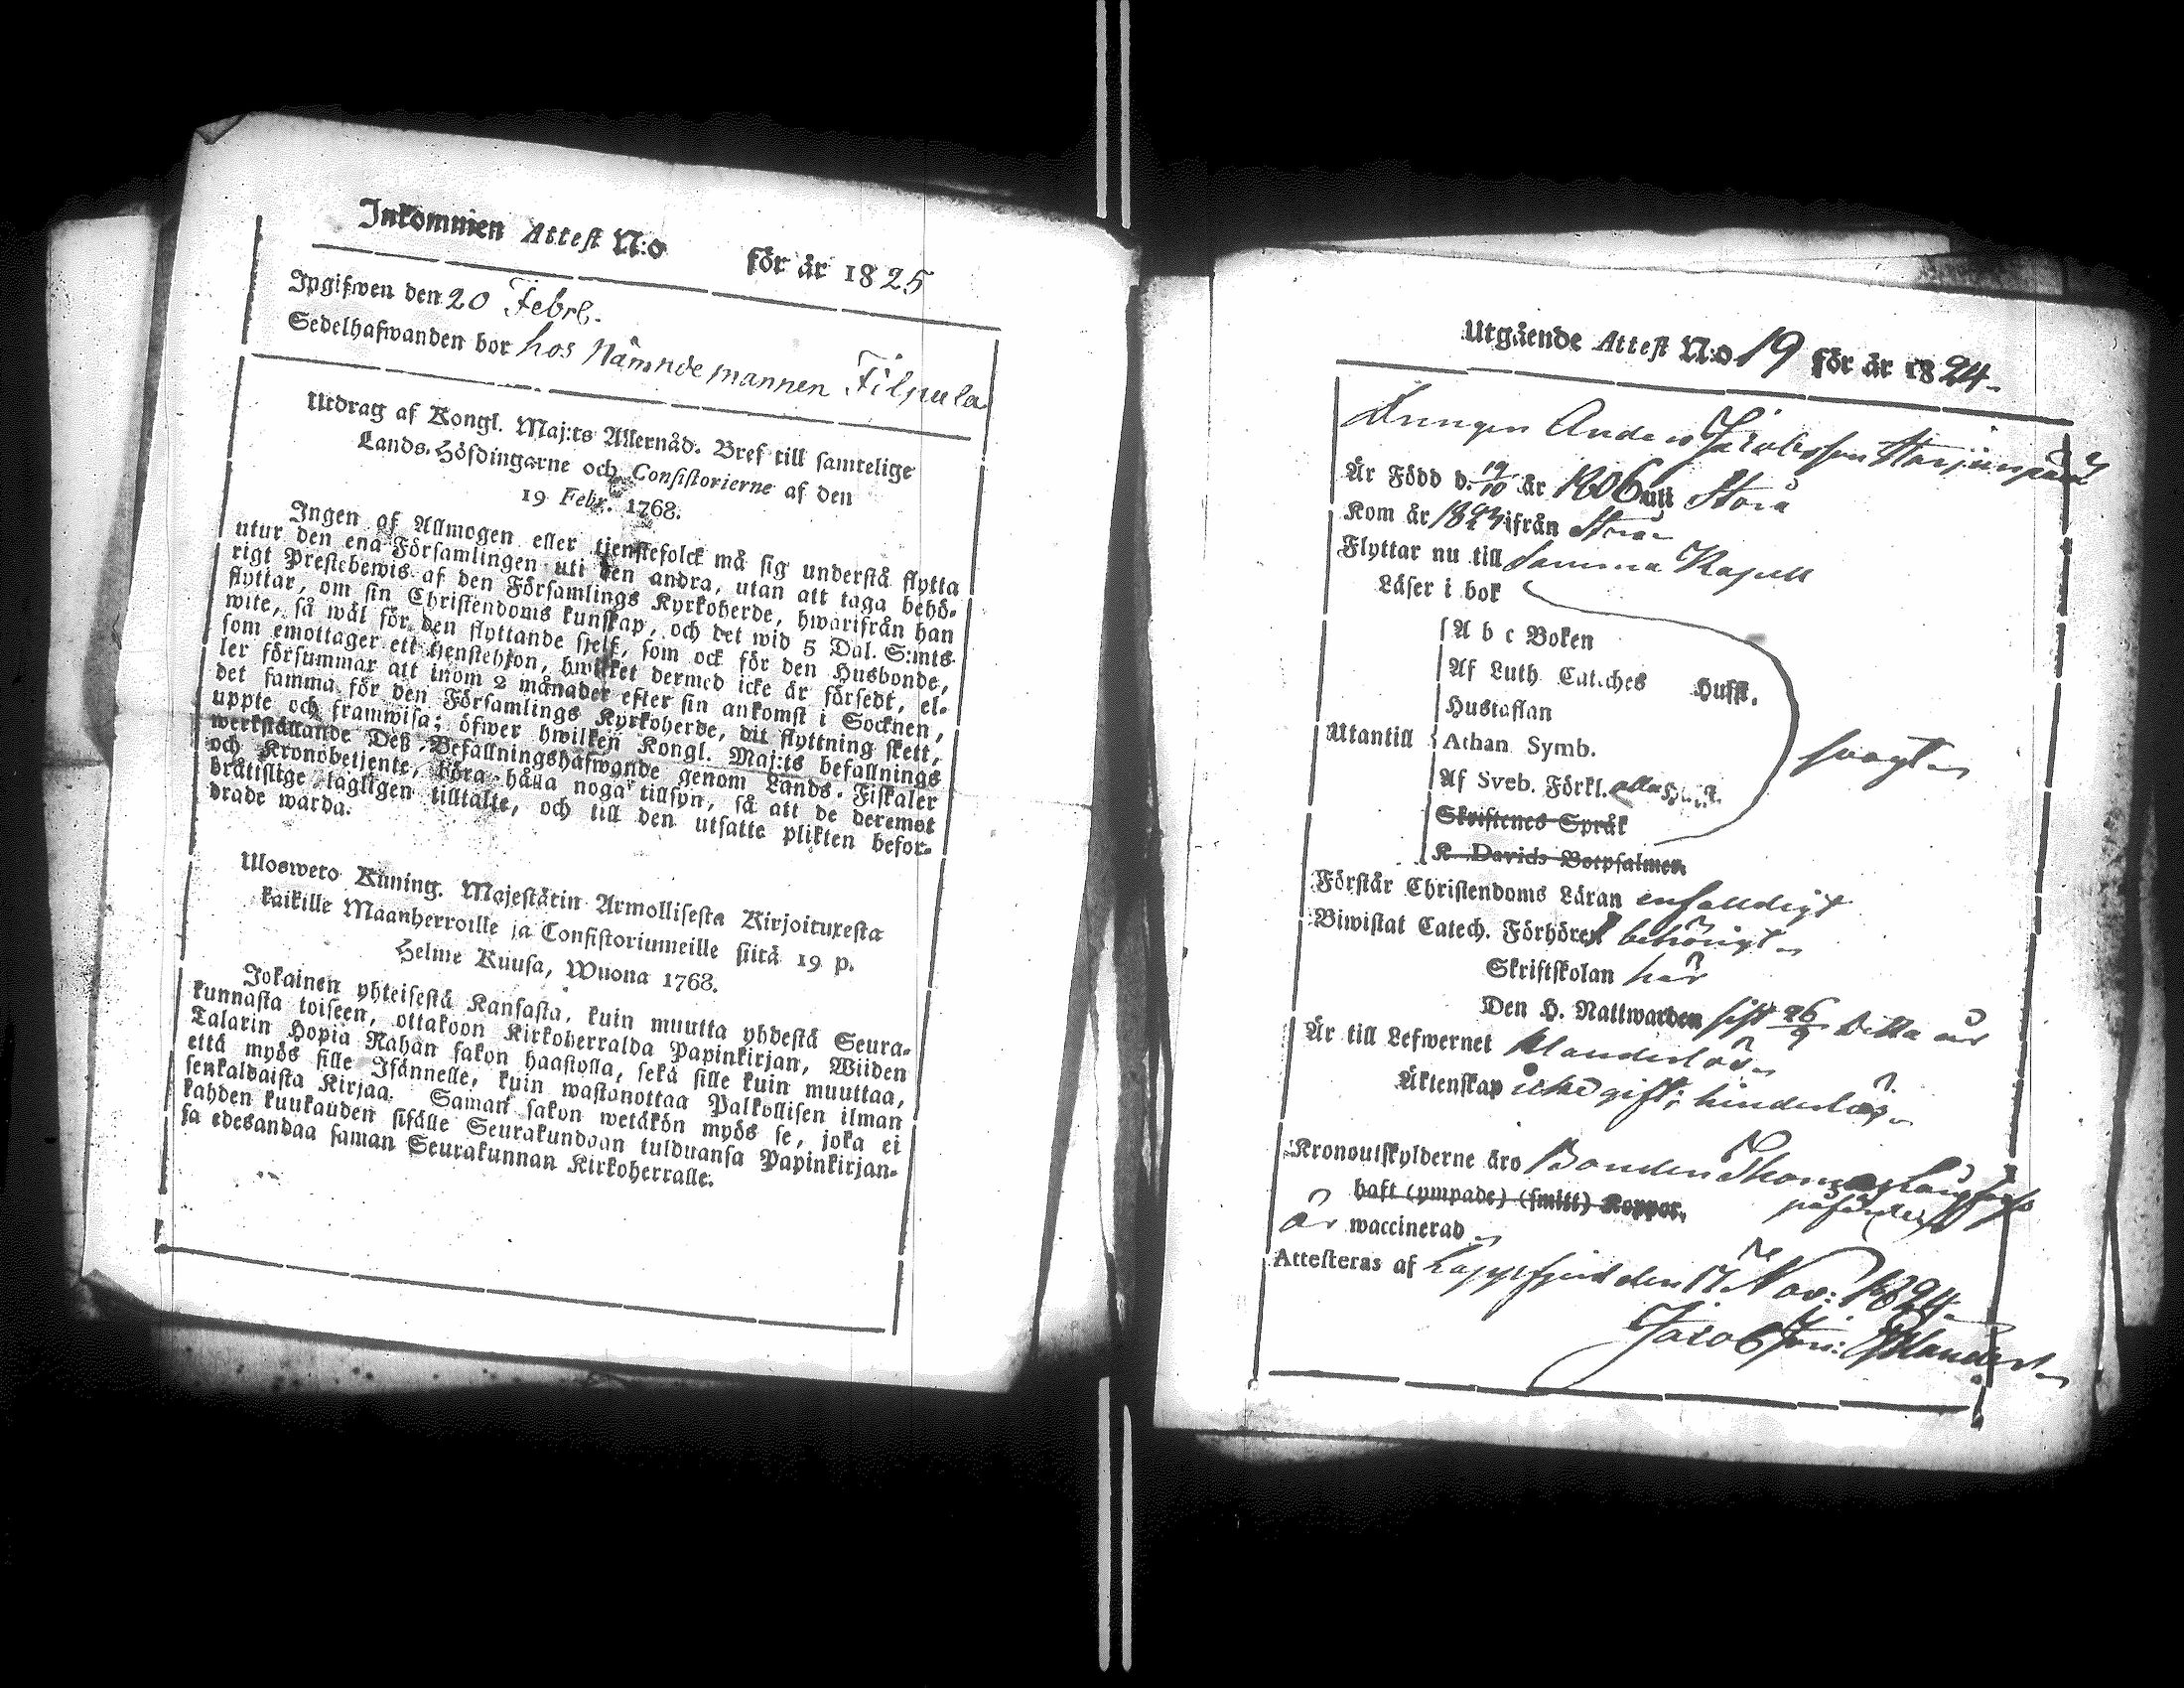 Inkommen Attest N:o för år 1825
Ipgifwen den 20 Febrl.
Sedelhafwanden bor hos Nämndemannen Filpula
Utdrag af Kongl. Maj:ts Allernåd. Bref till samtelige
Lands-Höfdingarne och Consistorierne af den
19 Febr. 1768.
Ingen af Allmogen eller tjenstefolck må sig understå flytta
utur den ena Församlingen uti den andra, utan att taga behö-
rigt Prestebewis af den Församlings Kyrkoherde, hwarifrån han
flyttar, om sin Christendoms kunskap, och det wid 5 Dal. S:mts
wite, så wäl för den flyttande sjelf, som ock för den Husbonde,
som emottager ett tjenstehjon, hwilket dermed icke är försedt, el-
ler försummar att inom 2 månader efter sin ankomst i Socknen,
det samma för den Församlings Kyrkoherde, dit flyttning skett,
uppte och framwisa; öfwer hwilken Kongl. Maj:ts befallnings
werkställande Deß Befallningshafwande genom Lands-Fiskaler
och Kronobetjente, böra hålla noga tillsyn, så att de deremot
brätislige lagligen tilltalte, och till den utsatte plikten befor-
drade warda.
Uloswero Kuning. Majestätin Armollisesta Kirjoituxesta
kaikille Maanherroille ja Consistoriumeille siitä 19 p.
Helme Kuusa, Wuona 1768.
Jokainen yhteisestä Kansasta, kuin muutta yhdestä Seura-
kunnasta toiseen, ottakoon Kirkoherralda Papinkirjan, Wiiden
Talarin Hopia Rahan sakon haastolla, sekä sille kuin muuttaa,
että myös sille Isännelle, kuin wastanottaa Palkollisen ilman
senkaldaista Kirjaa. Saman sakon wetäkön myös se, joka ei
kahden kuukauden sisälle Seurakundaan tulduansa Papinkirjan-
sa edesandaa saman Seurakunnan Kirkoherralle.
Utgående Attest N:o 19 för år 1824.
Drengen Anders Jacobsson
Är Född d. 19/10 år 1806 uti Storå
Kom år ifrån Storå
Flyttar nu till samma Kapell
Läser i bok
Utantill
A b c Boken
Af Luth Cateches Husfl.
Hustaflan
Athan Symb.
Af Sveb. Förkl. alla
Skriftenes Språk
K Davids Botpsalmer
svagt
Förstår Christendoms Läran enfalldigt
Biwistat Catech. Förhören behörigt
Skriftskolan här
Den H. Nattwarden sist 26/9 detta år
Är till Lefwernet klanderlös
Äktenskap icke gift; hinderlös
Kronoutskylderne äro Bonden Thomas
påförde
haft (ympade) (smitt) Koppor.
är waccinerad
Attesteras af Lappfjerd den 17 Nov: 1824
Jacob Joh: